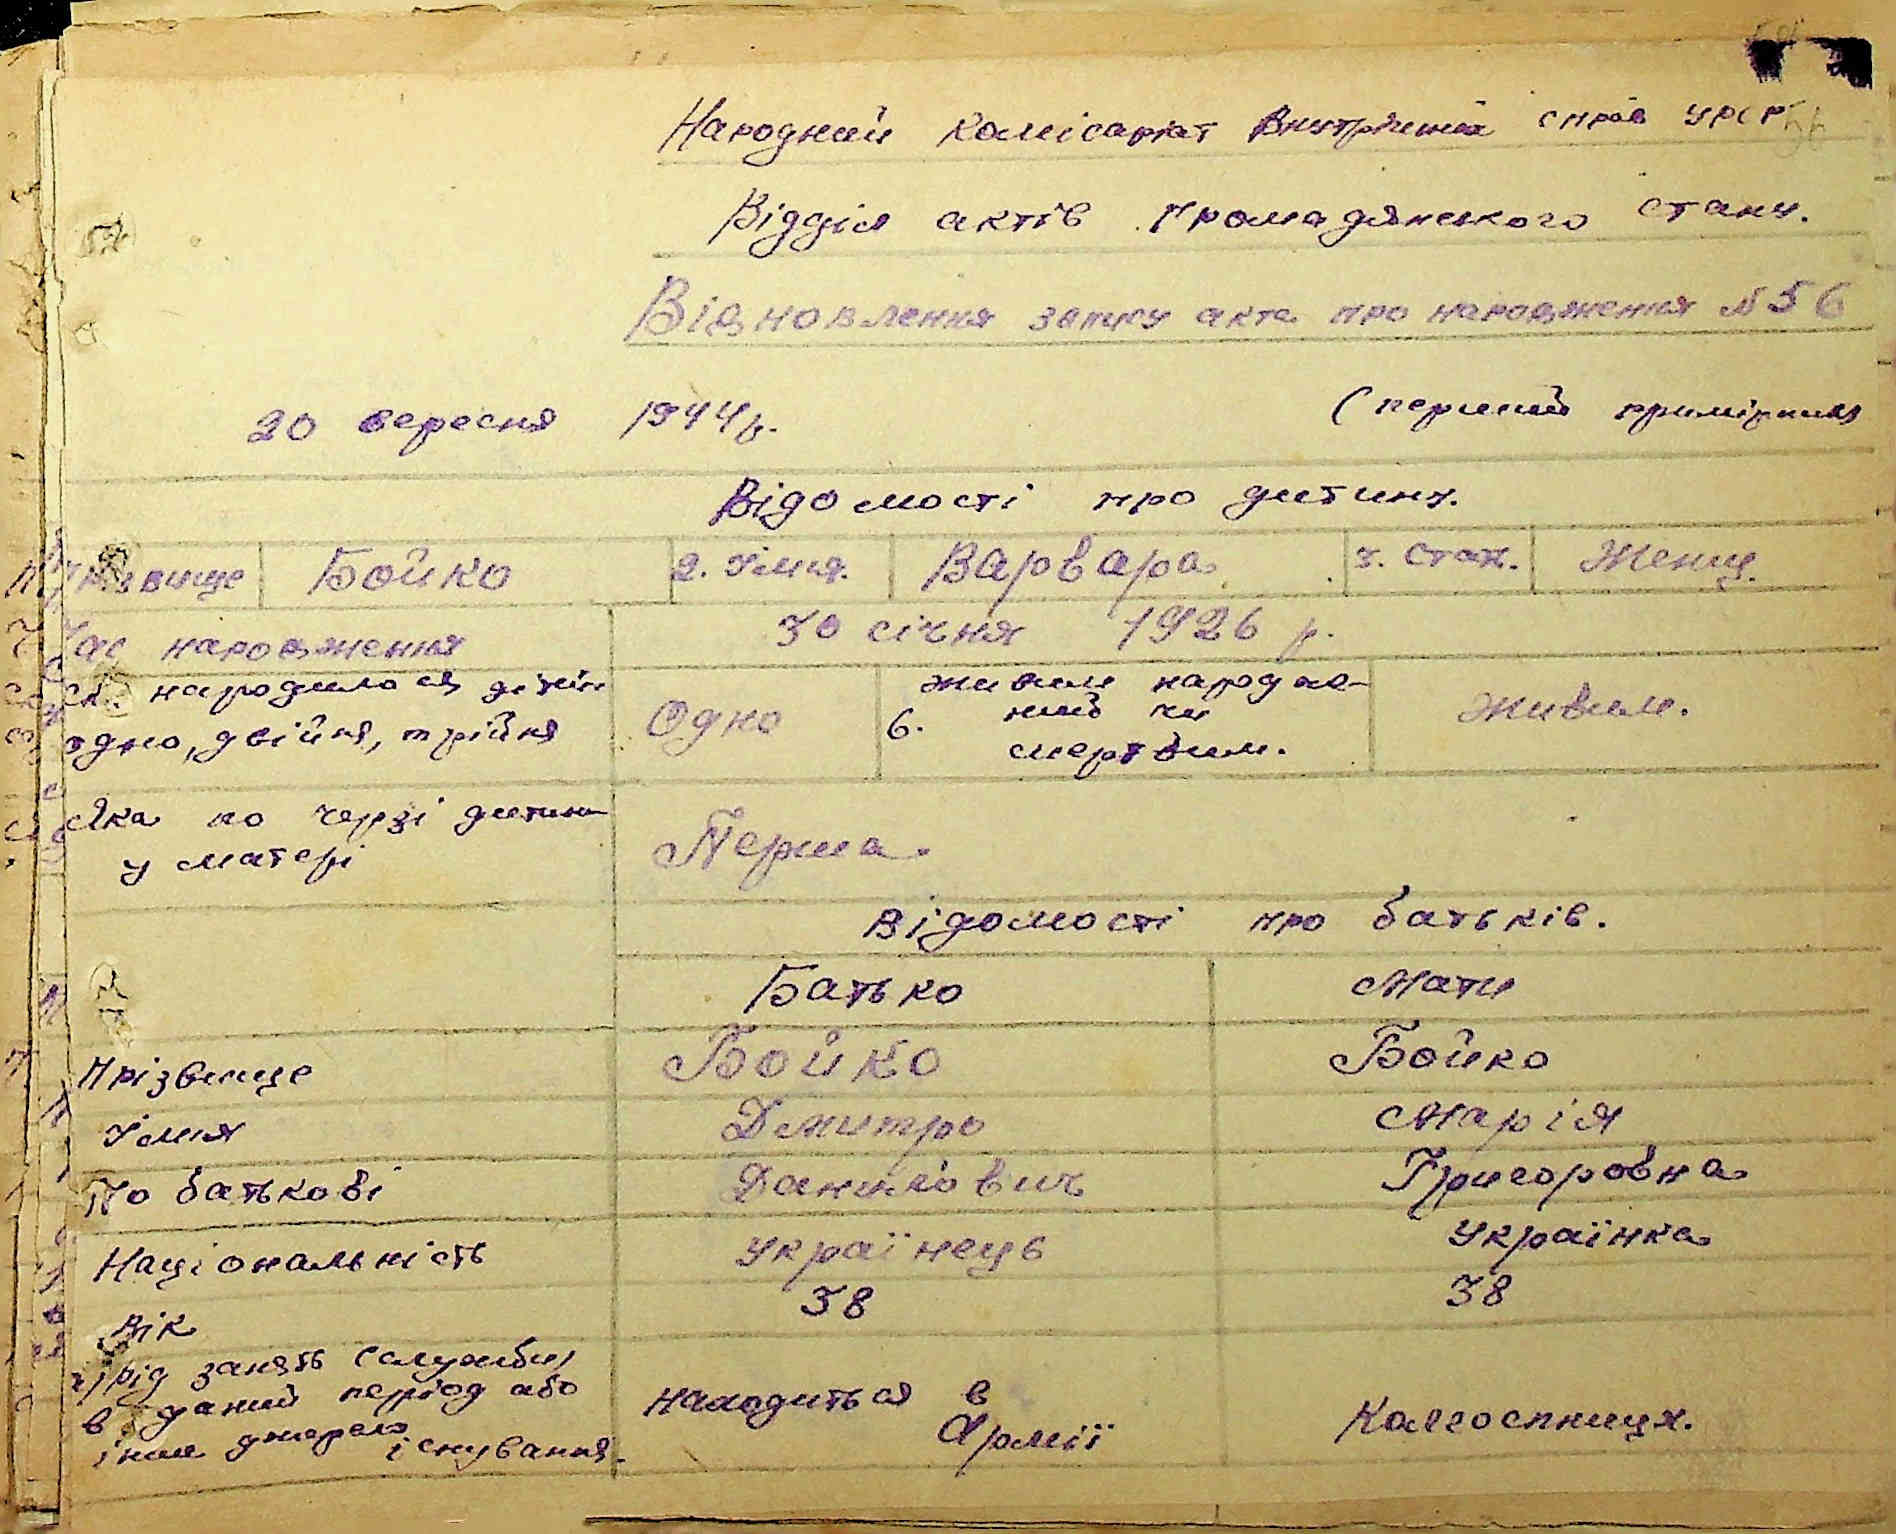 Народний Комісаріат Внутрішніх справ УРСР
Відділ актів Громадянського стану.
Відновлення запису акта про народження N 56
20 вересня 1944 р. (перший примірник)
Відомості про дитину.
Прізвище Бойко 2. Імя. Варвара 3. Стать. Женщ.
Час народження 30 січня 1926 р.
Ск. народилося дітей
одно, двійня, трійня
Одно
6. живим народже-
ний чи
мертвим.
Живим.
Яка по черзі дитина
у матері
Перша
Відомості про батьків.
Батько Мати
Прізвище Бойко Бойко
Імя Дмитро Марія
По батькові Данилович Григоровна
Національність Українець Українка
Вік 38 38
а) рід занять (служби)
в даний період або
інше джерело
існування.
Находиться в
Армії
Колгоспниця.